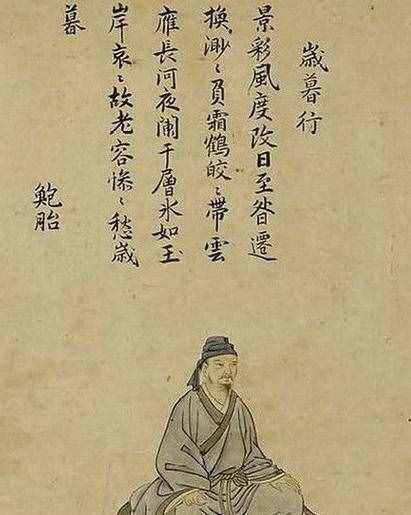 嵗暮行
景彩風度改日至昝遷
換渺〻負霜鶴皎〻帶雲
鴈長河夜闌干層氷如玉
岸哀〻故老容慘〻愁嵗
暮
鮑胎